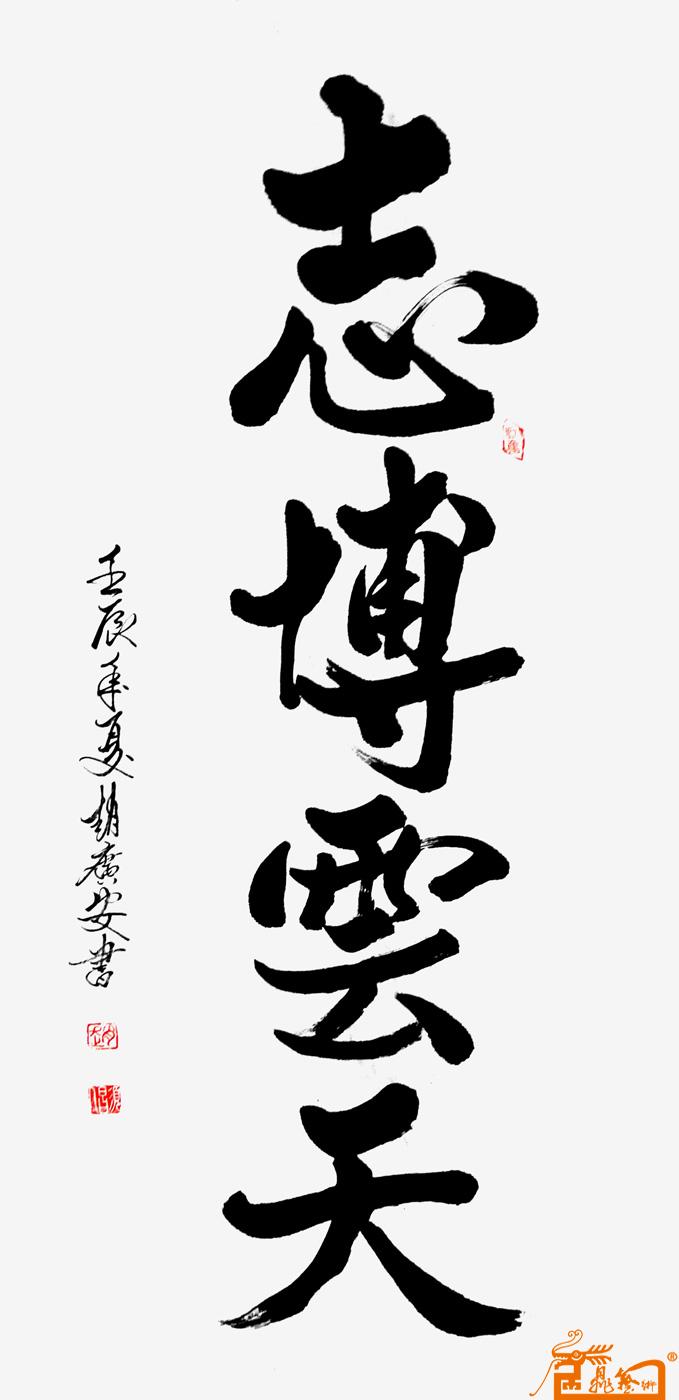 志博雲天
壬辰年夏趙廣安書